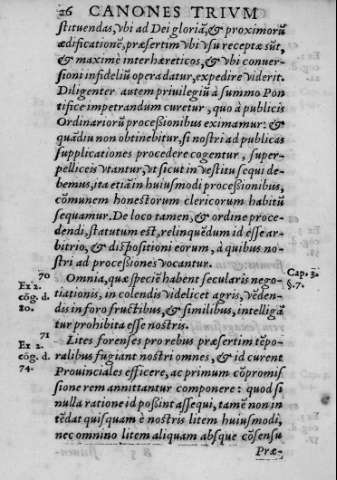 26 CANONES TRIVM
stituendas, vbi ad Dei gloriã, & proximorũ
ædificationẽ, præsertim vbi vsu receptæ sũt,
& maximè inter hæreticos, & vbi conuer-
sioni infideliũ opera datur, expedire viderit.
Diligenter autem priuilegiũ à summo Pon
tifice impetrandum curetur, quo à publicis
Ordinariorũ processionibus eximamur: &
quãdiu non obtinebitur, si nostri ad publicas
supplicationes procedere cogentur, super-
pelliceis vtantur, vt sicut in vestitu sequi de-
bemus, ita etiã in huiusmodi processionibus,
cõmunem honestorum clericorum habitũ
sequamur. De loco tamen, & ordine proce-
dendi, statutum est, relinquẽdum id esse ar-
bitrio, & dispositioni eorum, à quibus no-
stri ad processiones vocantur.
70
Ex 2.
cõg. d.
20.
Omnia, quæ speciẽ habent secularis nego-
tiationis, in colendis videlicet agris, vẽden-
dis in foro fructibus, & similibus, intelligã
tur prohibita esse nostris.
Cap. 3.
§. 7.
71
Ex 2.
cõg. d.
74.
Lites forenses pro rebus præsertim tẽpo-
ralibus fugiant nostri omnes, & id curent
Prouinciales efficere, ac primum cõpromis
sione rem annittantur componere: quod si
nulla ratione id possint assequi, tamẽ non in
tẽdat quisquam è nostris litem huiusmodi,
nec omnino litem aliquam absque cõsensu
Præ-